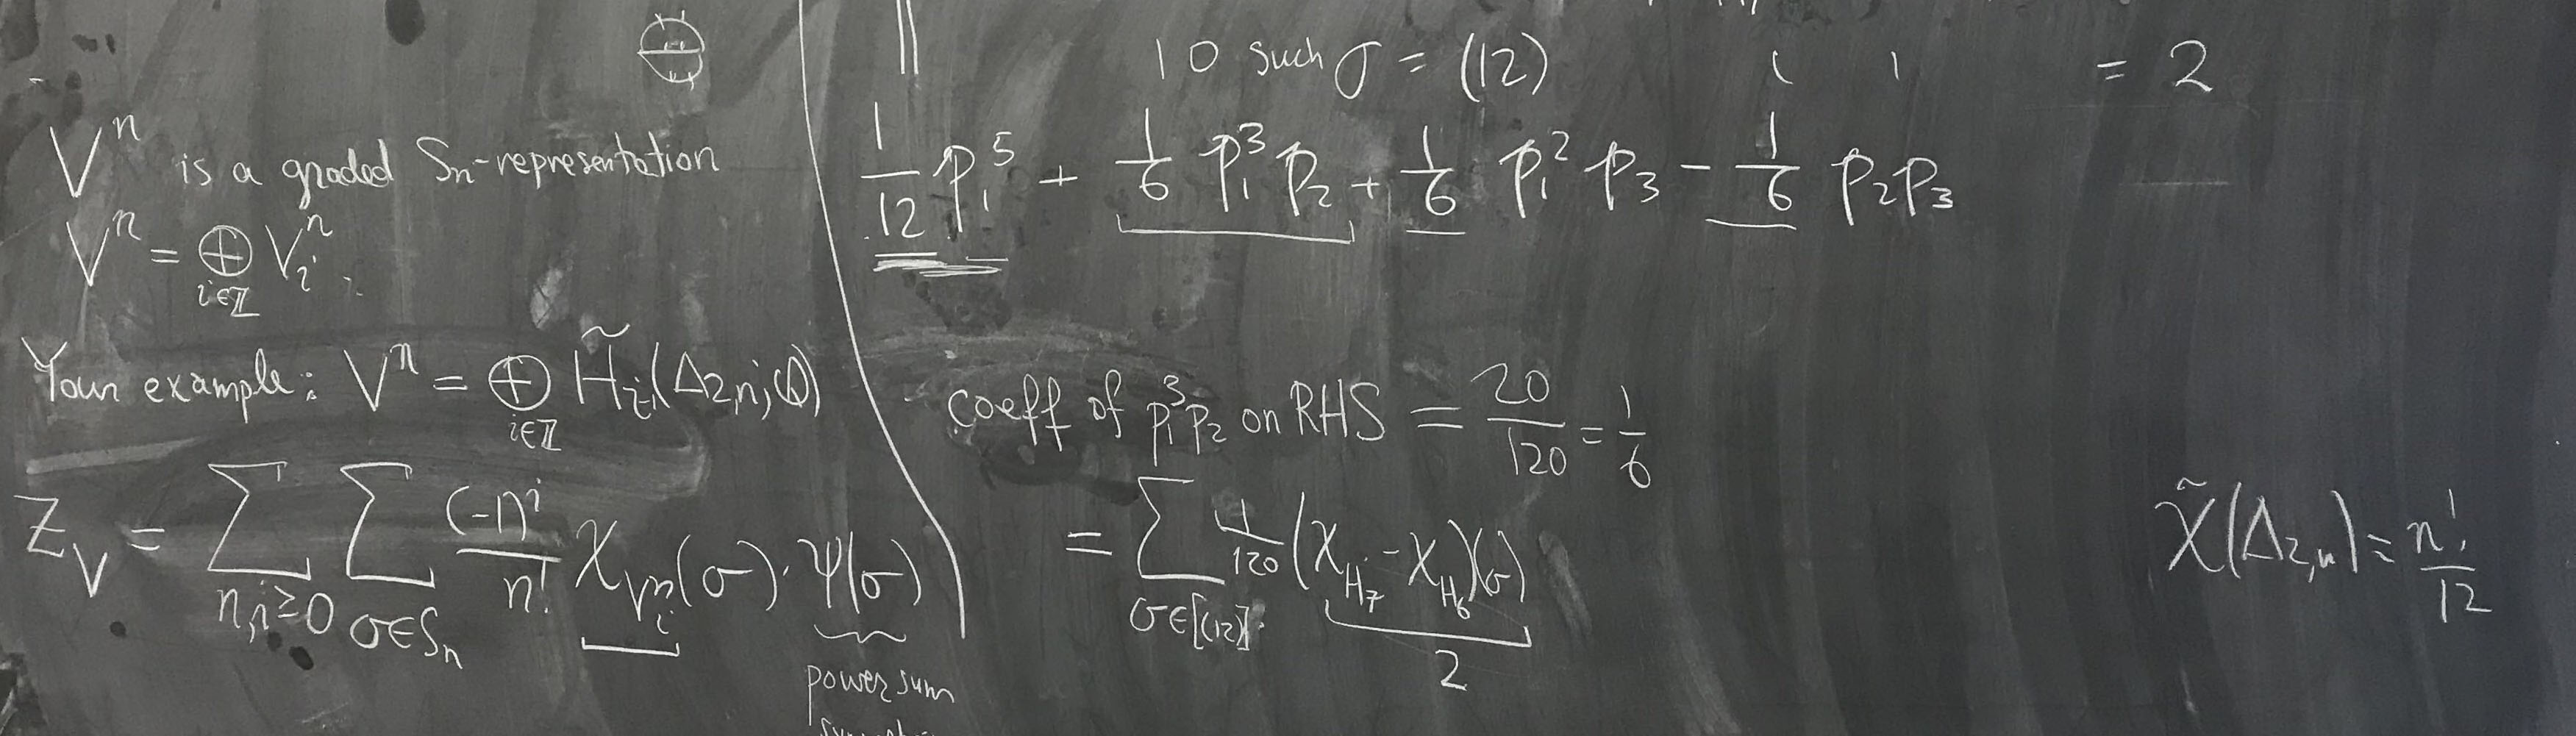 V^n is a graded Sn-representation
V^n = ⊕_{i∈ℤ} V_i^n.
Your example: V^n = ⊕_{i∈ℤ} H̃_i(Δ_{2,n}; ℚ)
Z_V = Σ_{n,i≥0} Σ_{σ∈S_n} (-1)^i/n! χ_{V_i^n}(σ)·ψ(σ)
power sum
||
10 such σ = (12)
= 2
1/12 p_1^5 + 1/6 p_1^3 p_2 + 1/6 p_1^2 p_3 - 1/6 p_2 p_3
coeff of p_1^3 p_2 on RHS = 20/120 = 1/6
= Σ_{σ∈[(12)]} 1/120 (χ_{H_7} - χ_{H_6})(σ)
2
χ̃(Δ_{2,n}) = n!/12